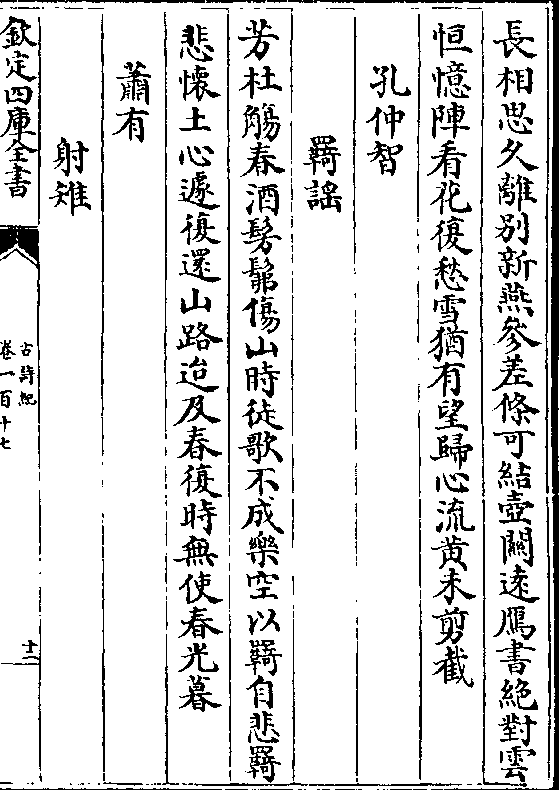 長相思久離别新燕參差條可結壺闗逺鴈書絶對雲
恒憶陣看花復愁雪猶有望歸心流黄未剪截
孔仲智
羇謡
芳杜觴春酒髣髴傷山時徒歌不成樂空以羇自悲羇
悲懷土心遽復還山路迨及春復時無使春光暮
蕭有
射雉
欽定四庫全書
古詩紀
卷一百十七
十二